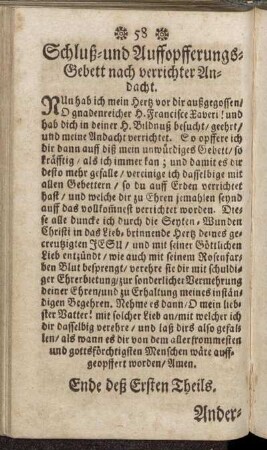 58
Schluß-und Auffopfferungs-
Gebett nach verrichter An-
dacht.
NUn hab ich mein Hertz vor dir außgegossen/
O gnadenreicher H. Francisce Xaveri! und
hab dich in deiner H. Bildnuß besucht/ geehrt/
und meine Andacht verrichtet. So opffere ich
dir dann auff diß mein unwürdiges Gebett/ so
kräfftig/ als ich immer kan; und damit es dir
desto mehr gefalle/ vereinige ich dasselbige mit
allen Gebettern/ so du auff Erden verrichtet
hast/ und welche dir zu Ehren jemahlen seynd
auff das vollkomnest verrichtet worden. Die-
se alle duncke ich durch die Seyten-Wunden
Christi in das Lieb-brinnende Hertz deines ge-
creutzigten JESU/ und mit seiner Göttlichen
Lieb entzündt/ wie auch mit seinem Rosenfar-
ben Blut besprengt/ verehre sie dir mit schuldi-
ger Ehrerbietung/ zur sonderlicher Vermehrung
deiner Ehren/ und zu Erhaltung meines instän-
digen Begehren. Nehme es dann/ O mein lieb-
ster Vatter! mit solcher Lieb an/ mit welcher ich
dir dasselbig verehre/ und laß dirs also gefal-
len/ als wann es dir von dem allerfrommesten
und gottsförchtigsten Menschen wäre auff-
geopffert worden/ Amen.
Ende deß Ersten Theils.
Ander-